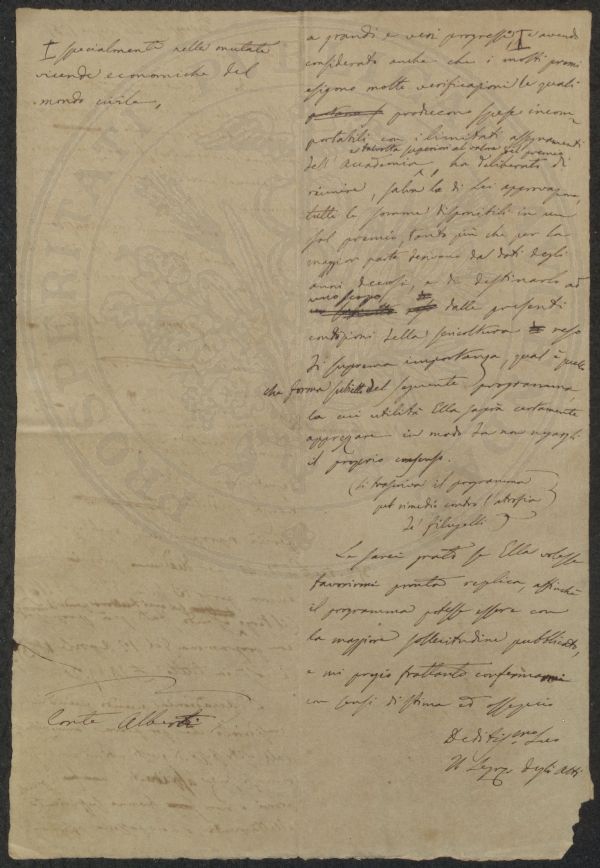 Ɪ specialmente nelle mutate
vicende economiche del
mondo civile,
a grandi e veri progressi, Ɪ e avendo
considerato anche che i molti premi
esigono molte verificazioni le quali
producono spese incom-
portabili con i limitati assegnamenti
e talvolta superiori al valore del premio
dell' Accademia, ha deliberato di
riunire, salva la di Lei approvazione,
tutte le somme disponibili in un
sol premio, tanto più che per la
maggior parte derivano dai doti degli
anni decorsi, e di destinarlo ad
uno scopo
dalle presenti
condizioni della sericoltura reso
di suprema importanza, qual è quello
che forma subietto del seguente programma,
la cui utilità Ella saprà certamente
apprezzare in modo da non negargli
il proprio consenso.
(Si trascriva il programma
pel rimedio contro l'atrofia
de' filugelli)
Le sarei grato se Ella volesse
favorirmi pronta replica, affinchè
il programma potesse essere con
la maggiore sollecitudine pubblicato,
e mi pregio frattanto confermarmi
con sensi di stima ed ossequio
Deditissmo Suo
Il Segro degli Atti
Conte Alberti